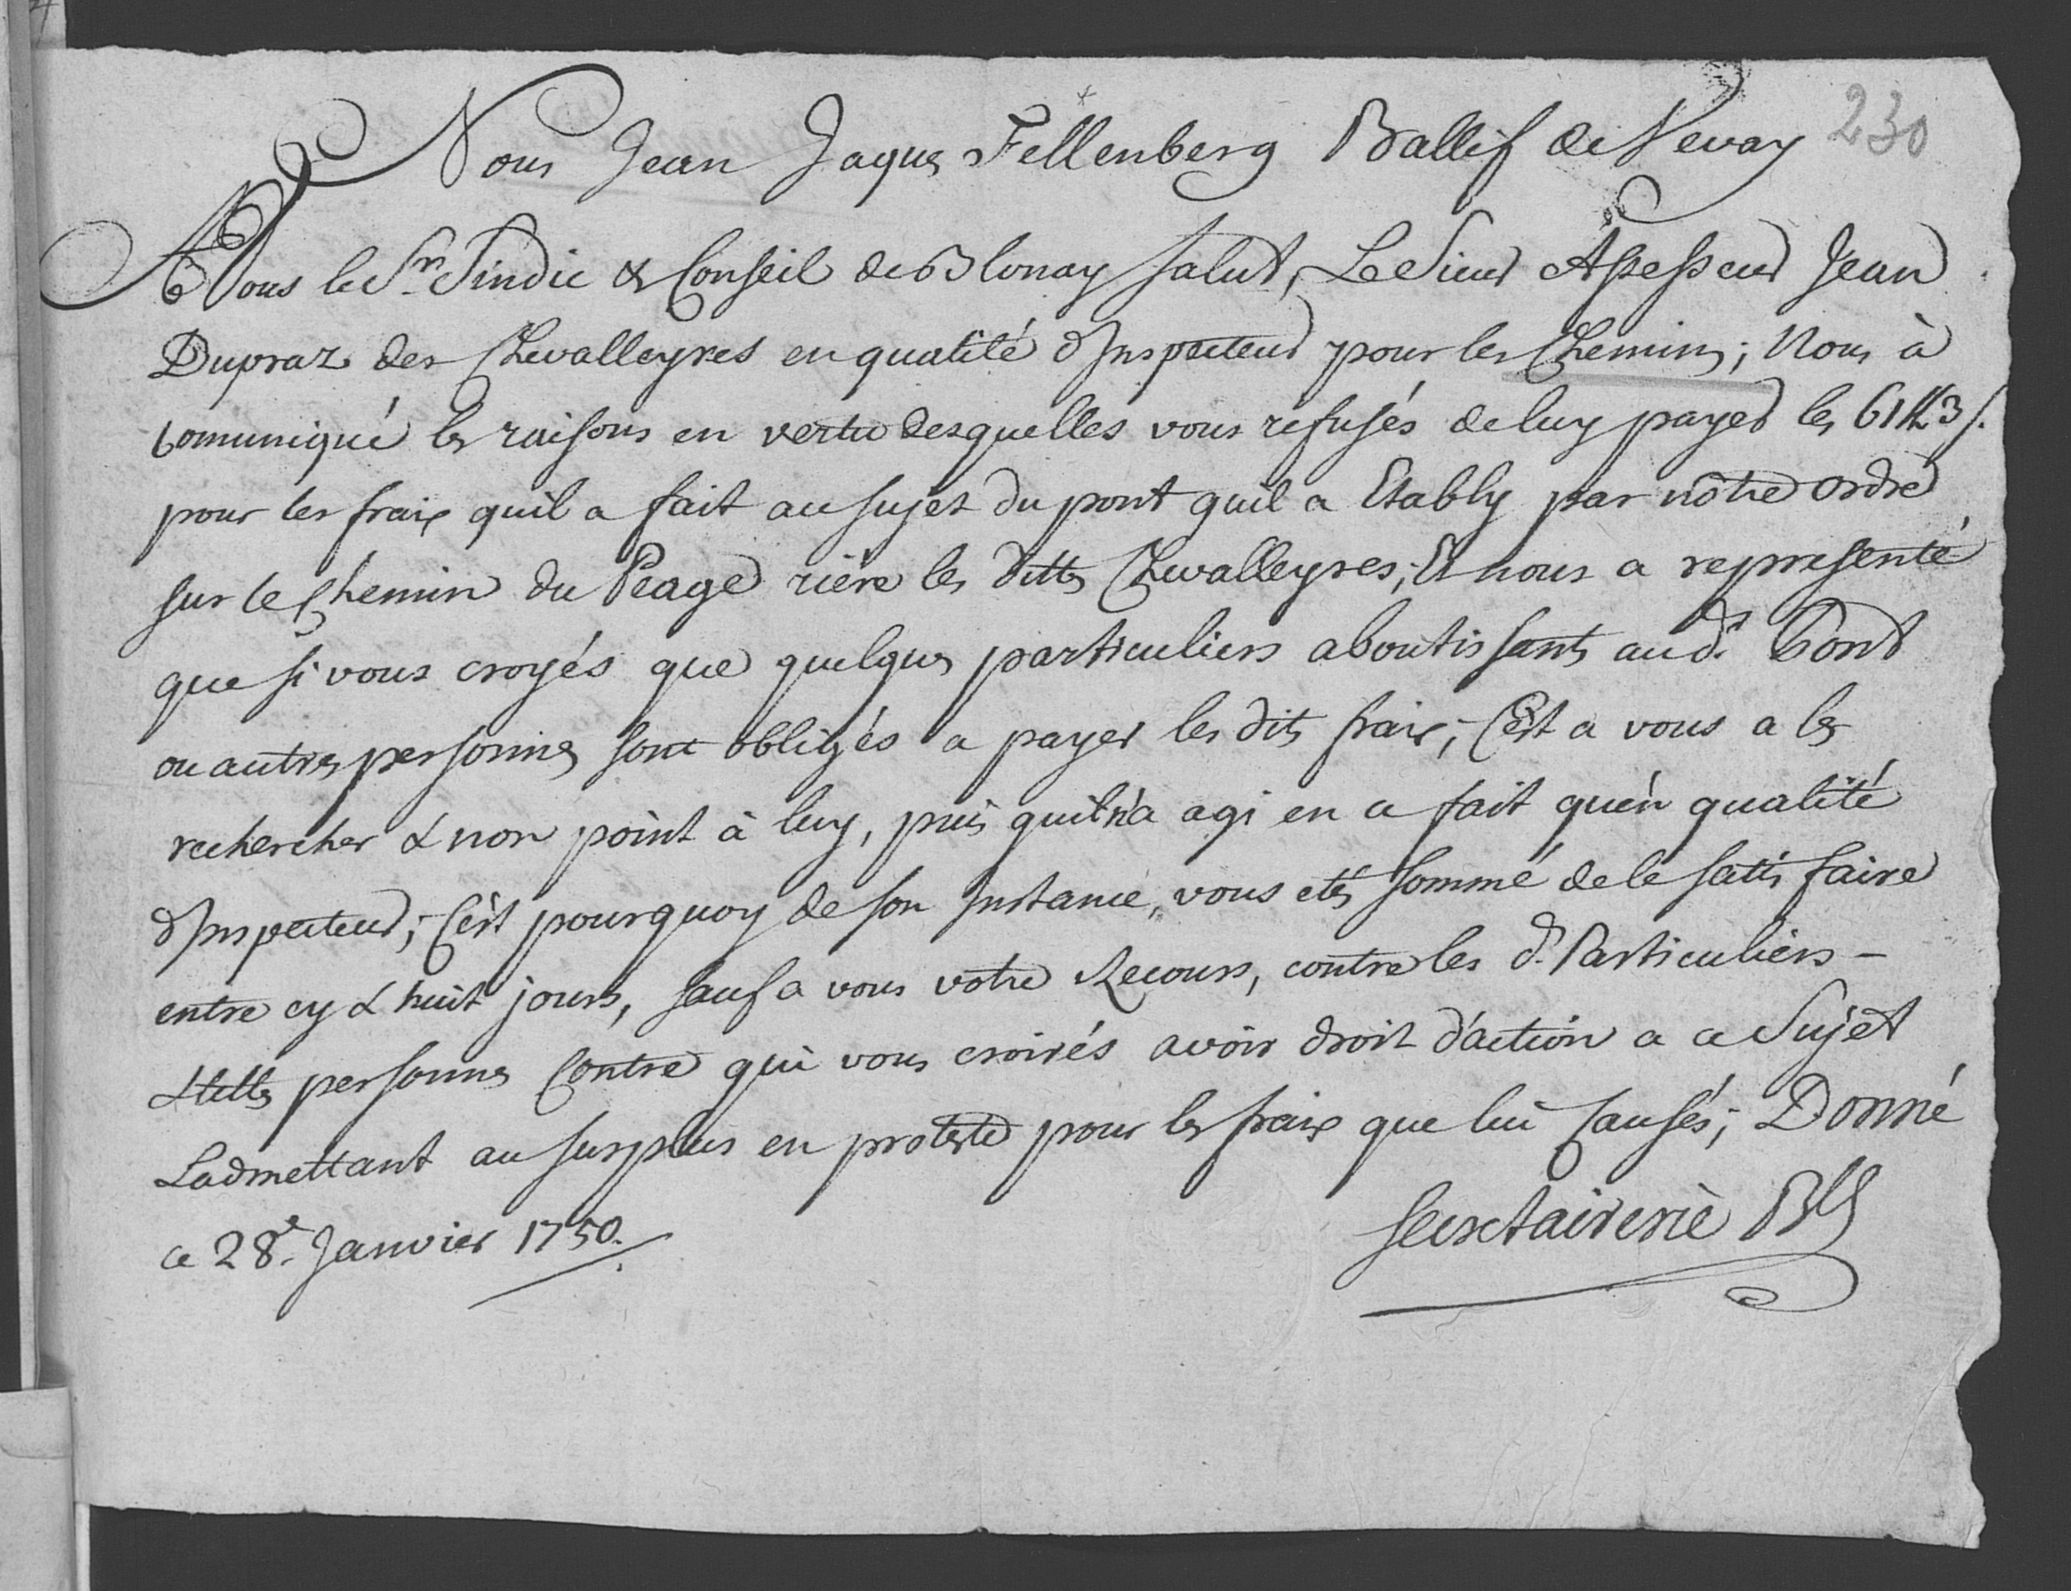 230
Nous Jean Jaques Fellenberg Ballif de Vevay
A Vous le Sr. Sindic & Conseil de Blonay Salut, Le Sieur Assesseur Jean
Dupraz des Chevalleyres en qualité d'Inspecteur pour les Chemins; Nous à
comuniqué les raisons en vertu desquelles vous refusés de luy payer les 61 ℔ 3 s.
pour les frais quil a fait au sujet du pont quil a Etably par nôtre ordre
sur le Chemin du Peage rière les dittes Chevalleyres; Et nous a representé
que si vous croyés que quelques particuliers aboutissants aud.t Pont
ou autres personnes sont obligés a payer les dits frais; C'est a vous a les
rechercher & non point à luy, puis quil n'a agi en a fait qu'en qualité
d'Inspecteur; C'est pourquoy de son Instance, vous etes sommé de le satisfaire
entre cy & huit jours, sauf a vous votre Recours, contre les d.t Particuliers -
& telles personnes Contre qui vous croirés avoir droit d'action a ce Sujet
Ladmettant au surplus en proteste pour les frais que lui Causés; Donné
ce 28.e Janvier 1750.
Secretairerie Bls